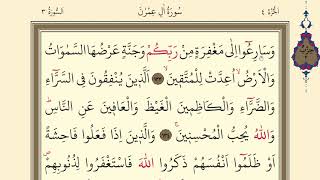 الجزء ٤ سورة ال عمرن السورة ٣
وَسَارِعُوا اِلٰى مَغْفِرَةٍ مِنْ رَبِّكُمْ وَجَنَّةٍ عَرْضُهَا السَّمٰوَاتُ
وَالْاَرْضُ اُعِدَّتْ لِلْمُتَّقِينَ ١٣٣ اَلَّذِينَ يُنْفِقُونَ فِي السَّرَّاءِ
وَالضَّرَّاءِ وَالْكَاظِمِينَ الْغَيْظَ وَالْعَافِينَ عَنِ النَّاسِ
وَاللّٰهُ يُحِبُّ الْمُحْسِنِينَ ١٣٤ وَالَّذِينَ اِذَا فَعَلُوا فَاحِشَةً
اَوْ ظَلَمُوا اَنْفُسَهُمْ ذَكَرُوا اللّٰهَ فَاسْتَغْفَرُوا لِذُنُوبِهِمْ